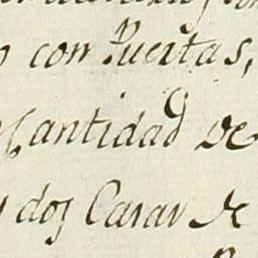 con Puertas,
Cantidad de
dos Casas de